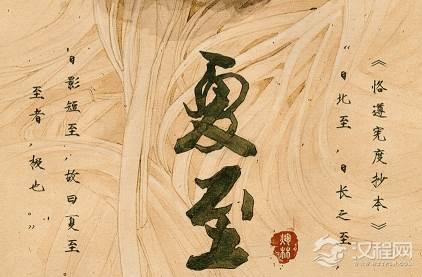 《恪遵宪度抄本》
“日北至,日长之至
夏至
日影短至,故曰夏至。
至者,极也。”
汉程网